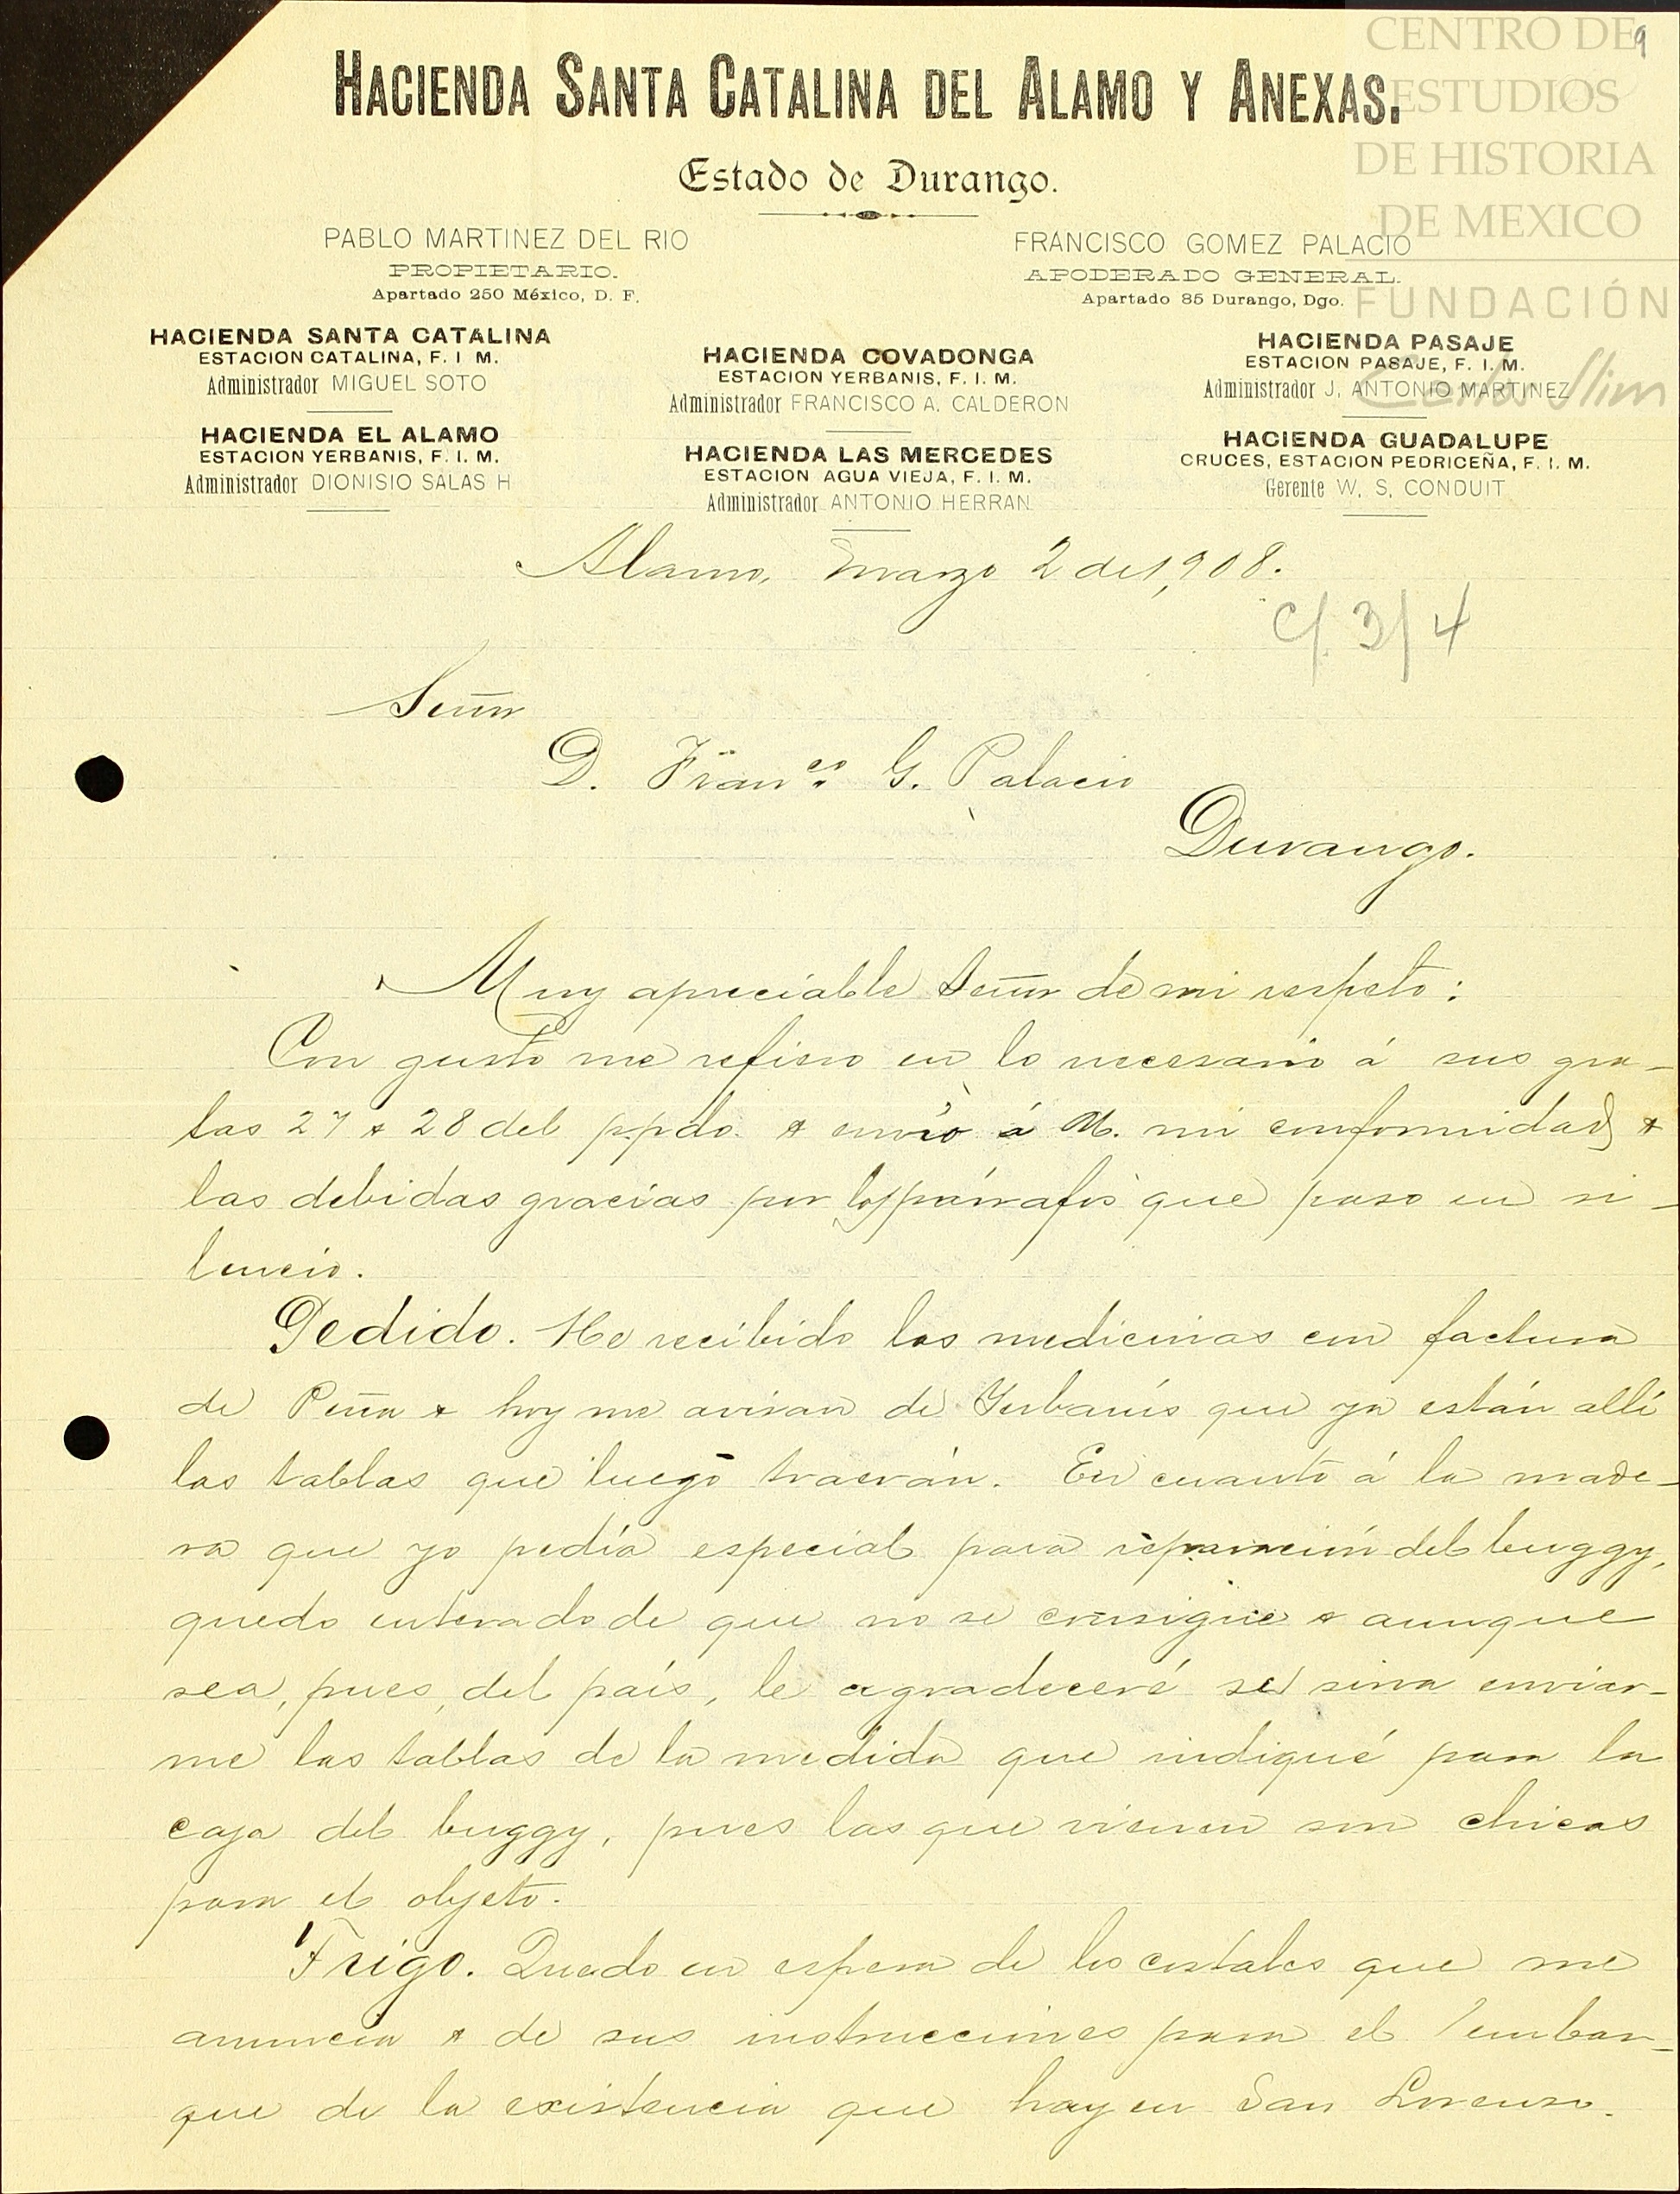 CENTRO DE
ESTUDIOS
DE HISTORIA
DE MEXICO
FUNDACIÓN
Carlos Slim
9
HACIENDA SANTA CATALINA DEL ALAMO Y ANEXAS.
Estado de Durango.
PABLO MARTINEZ DEL RIO
PROPIETARIO.
Apartado 250 México, D. F.
FRANCISCO GOMEZ PALACIO
APODERADO GENERAL.
Apartado 85 Durango, Dgo.
HACIENDA SANTA CATALINA
ESTACION CATALINA, F. I. M.
Administrador MIGUEL SOTO
HACIENDA EL ALAMO
ESTACION YERBANIS, F. I. M.
Administrador DIONISIO SALAS H
HACIENDA COVADONGA
ESTACION YERBANIS, F. I. M.
Administrador FRANCISCO A. CALDERON
HACIENDA LAS MERCEDES
ESTACION AGUA VIEJA, F. I. M.
Administrador ANTONIO HERRAN
HACIENDA PASAJE
ESTACION PASAJE, F. I. M.
Administrador J. ANTONIO MARTINEZ
HACIENDA GUADALUPE
CRUCES, ESTACION PEDRICEÑA, F. I. M.
Gerente W. S. CONDUIT
Alamo, Marzo 2 de 1,908.
c/ 3/ 4
Señor
D. Franco. G. Palacio
Durango.
Muy apreciable Señor de mi respeto:
Con gusto me refiero en lo necesario á sus gra-
tas 27 & 28 del ppdo. & envío á U. mi conformidad &
las debidas gracias por los párrafos que paso en si-
lencio.
Pedido. He recibido las medicinas con factura
de Peña & hoy me avisan de Yerbanís que ya están allí
las tablas que luego traerán. En cuanto á la made-
ra que yo pedía especial para reparación del buggy,
quedo enterado de que no se consigue & aunque
sea, pues, del país, le agradeceré se sirva enviar-
me las tablas de la medida que indiqué para la
caja del buggy, pues las que vienen son chicas
para el objeto.
Trigo. Quedo en espera de los costales que me
anuncia & de sus instrucciones para el embar-
que de la existencia que hay en San Lorenzo.